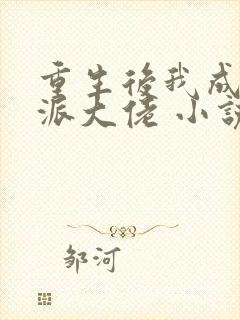 重生後我成
派大佬 小說
邹河